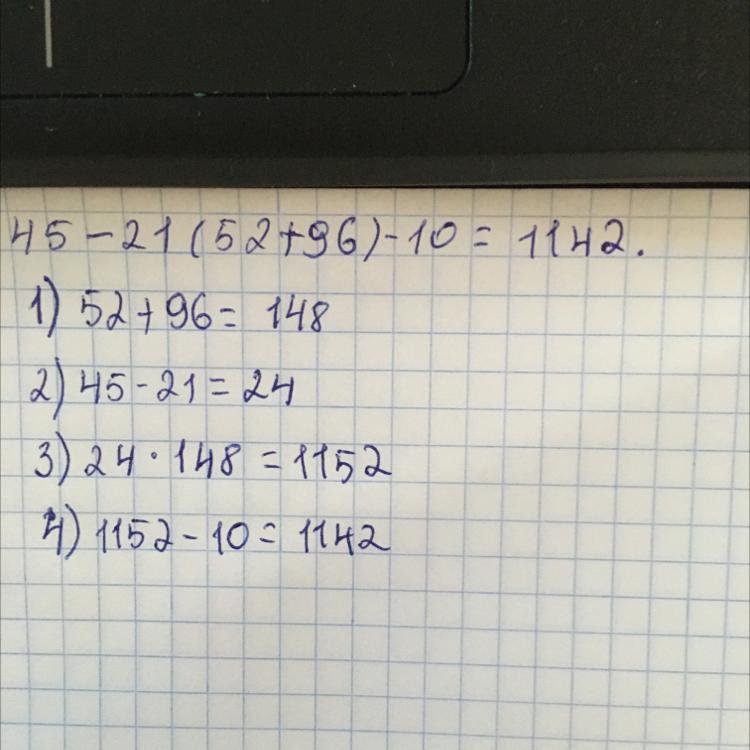 45-21(52+96)-10=1142.
1) 52+96= 148
2) 45-21=24
3) 24·148=1152
4) 1152-10=1142